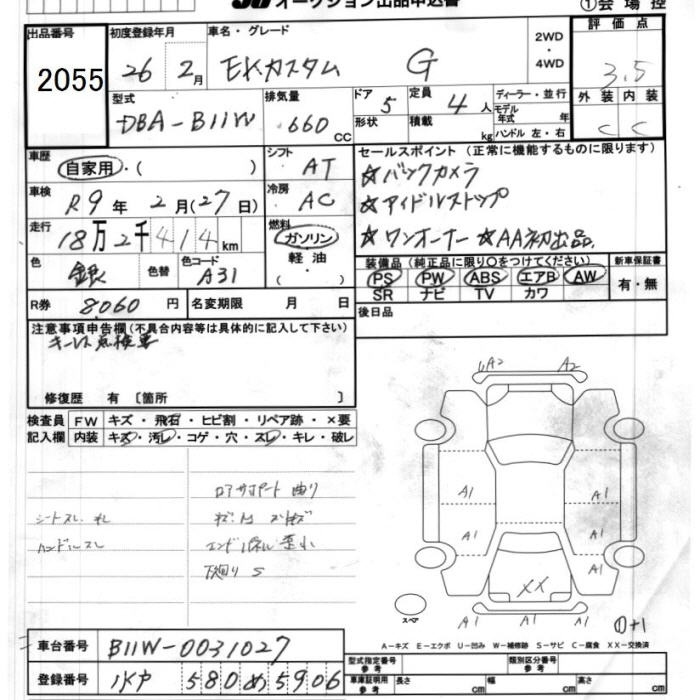 オークション出品申込書
①会場控
出品番号 2055
初度登録年月 26 2月
車名・グレード EKカスタム G
2WD・4WD
評価点 3.5
型式 DBA-B11W
排気量 660 CC
ドア 5
形状
定員 4人
積載 kg
ディーラー・並行
モデル年式 年
ハンドル 左・右
外装 C
内装 C
車歴 自家用・( )
シフト AT
車検 R9年 2月(27日)
冷房 AC
走行 18万2千414km
燃料 ガソリン・軽油・( )
色 銀
色替
色コード A31
セールスポイント(正常に機能するものに限ります)
☆バックカメラ
☆アイドルストップ
☆ワンオーナー ☆AA初出品
装備品(純正品に限り○をつけてください)
PS PW ABS エアB AW
SR ナビ TV カワ
新車保証書 有・無
R券 8,060円
名変期限 月 日
後日品
注意事項申告欄(不具合内容等は具体的に記入して下さい)
キーレス点検要
修復歴 有〔箇所 〕
検査員記入欄
FW キズ・飛石・ヒビ割・リペア跡・×要
内装 キズ・汚レ・コゲ・穴・スレ・キレ・破レ
ロアサポート曲り
シートスレ
ハンドルスレ
エンドパネル歪小
下廻りS
A2 A2
A1 A1
A1 A1
A1 A1
XX
A1 A1
スペア
A-キズ E-エクボ U-凹み W-補修跡 S-サビ C-腐食 XX-交換済
車台番号 B11W-0031027
登録番号 水戸 580 め 5906
型式指定番号 参考
類別区分番号 参考
車庫証明用 参考 長さ cm 幅 cm 高さ cm